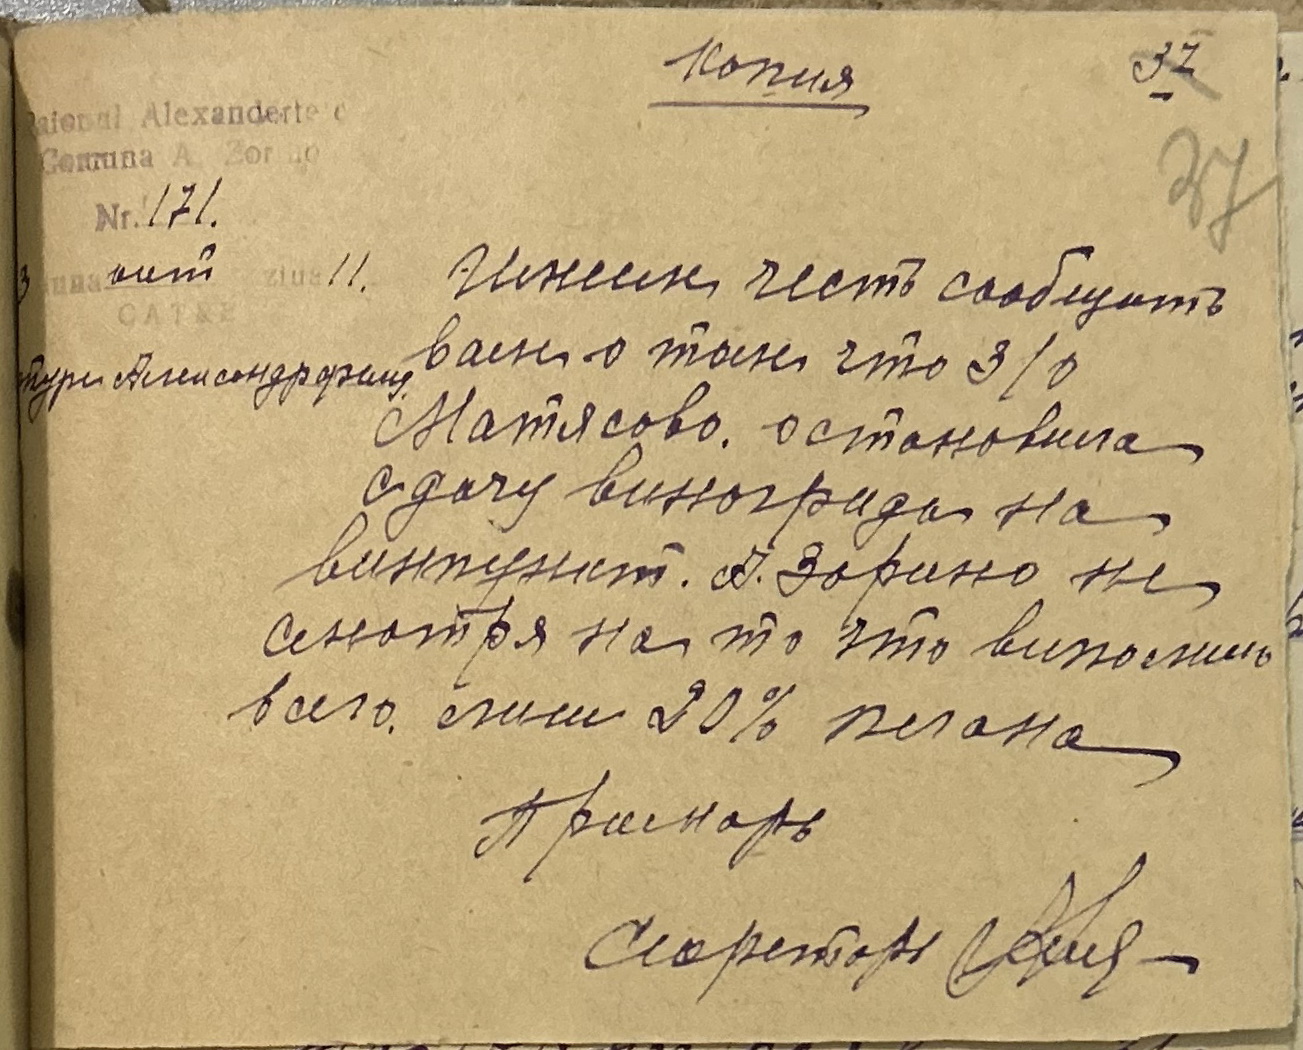 Копия
37
37
Raionul Alexanderfeld
Comuna A. Zorino
Nr. 171.
окт ziua 11.
CATRE
Александрфельд
Имеем честь сообщить
вам о том что з/о
Матясово. остановила
сдачу винограда на
винпункт. А. Зорино не
смотря на то что виполнила
всего. лиш 20% плана
Примарь
Секретарь